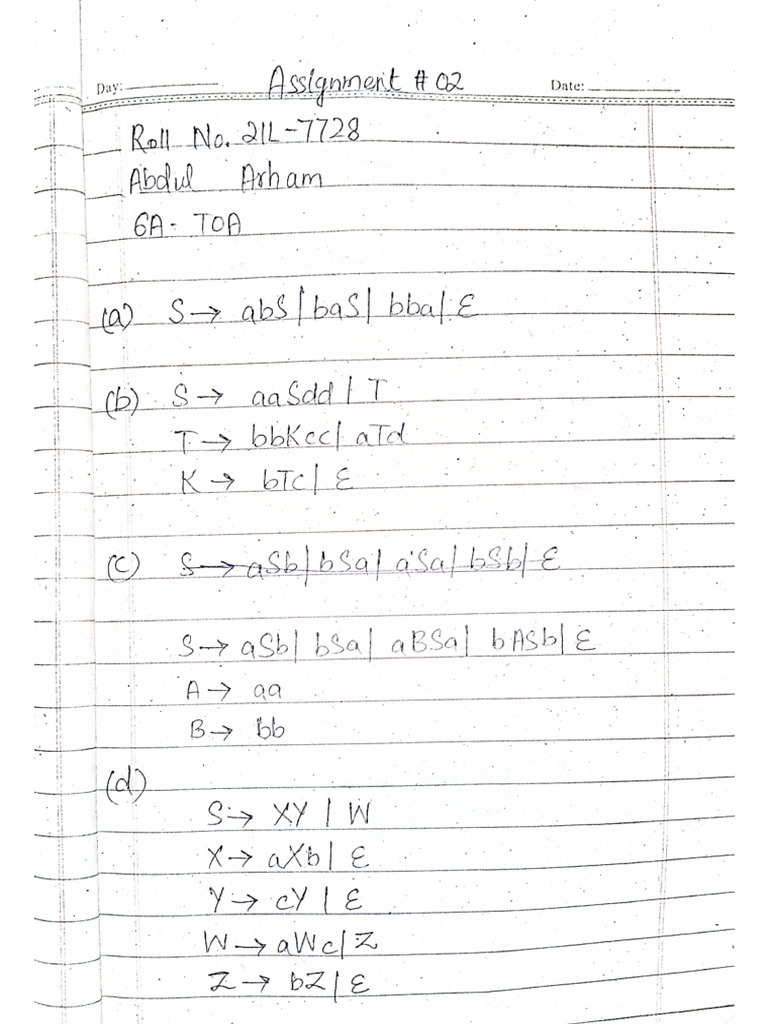 Assignment # 02
Day: Date:
Roll No. 21L-7728
Abdul Arham
6A- TOA
(a) S → abS | baS | bba | ε
(b) S → aaSdd | T
T → bbKcc | aTd
K → bTc | ε
(c) S → aSb | bSa | aSa | bSb | ε
S → aSb | bSa | aBSa | bASb | ε
A → aa
B → bb
(d)
S → XY | W
X → aXb | ε
Y → cY | ε
W → aWc | Z
Z → bZ | ε